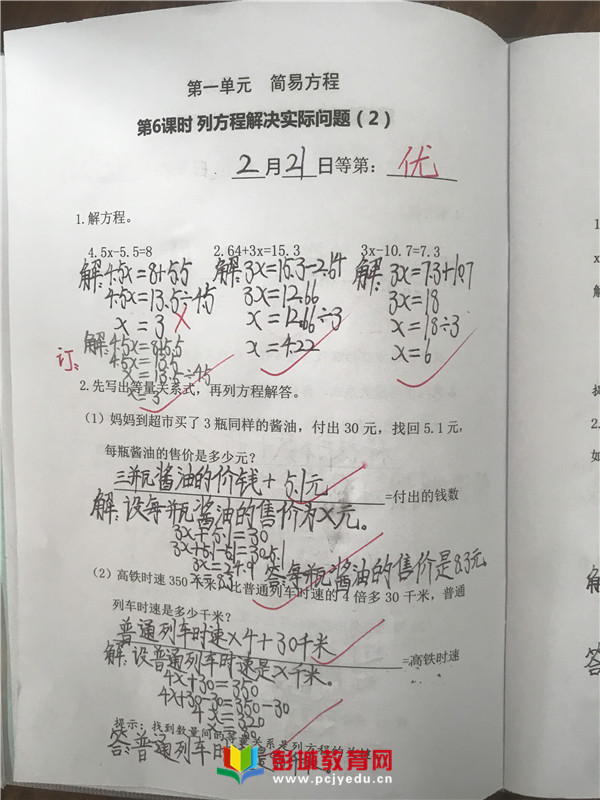 第一单元 简易方程
第6课时 列方程解决实际问题（2）
2月21日等第：优
1.解方程。
4.5x-5.5=8 2.64+3x=15.3 3x-10.7=7.3
解:4.5x=8+5.5 解:3x=15.3-2.64 解:3x=7.3+10.7
4.5x=13.5÷4.5 3x=12.66 3x=18
x=3 x=12.66÷3 x=18÷3
x=4.22 x=6
订:
解:4.5x=8+5.5
4.5x=13.5
x=13.5÷4.5
x=3
2.先写出等量关系式，再列方程解答。
（1）妈妈到超市买了3瓶同样的酱油，付出30元，找回5.1元，
每瓶酱油的售价是多少元？
三瓶酱油的价钱+5.1元=付出的钱数
解:设每瓶酱油的售价为x元。
3x+5.1=30
3x+5.1-5.1=30-5.1
3x=24.9
x=8.3 答:每瓶酱油的售价是8.3元
（2）高铁时速350千米，比普通列车时速的4倍多30千米，普通
列车时速是多少千米？
普通列车时速×4+30千米=高铁时速
解:设普通列车时速是x千米。
4x+30=350
4x+30-30=350-30
4x=320
提示：找到数量间的等量关系是列方程的关键
答:普通列车时速是
彭城教育网
www.pcjyedu.cn